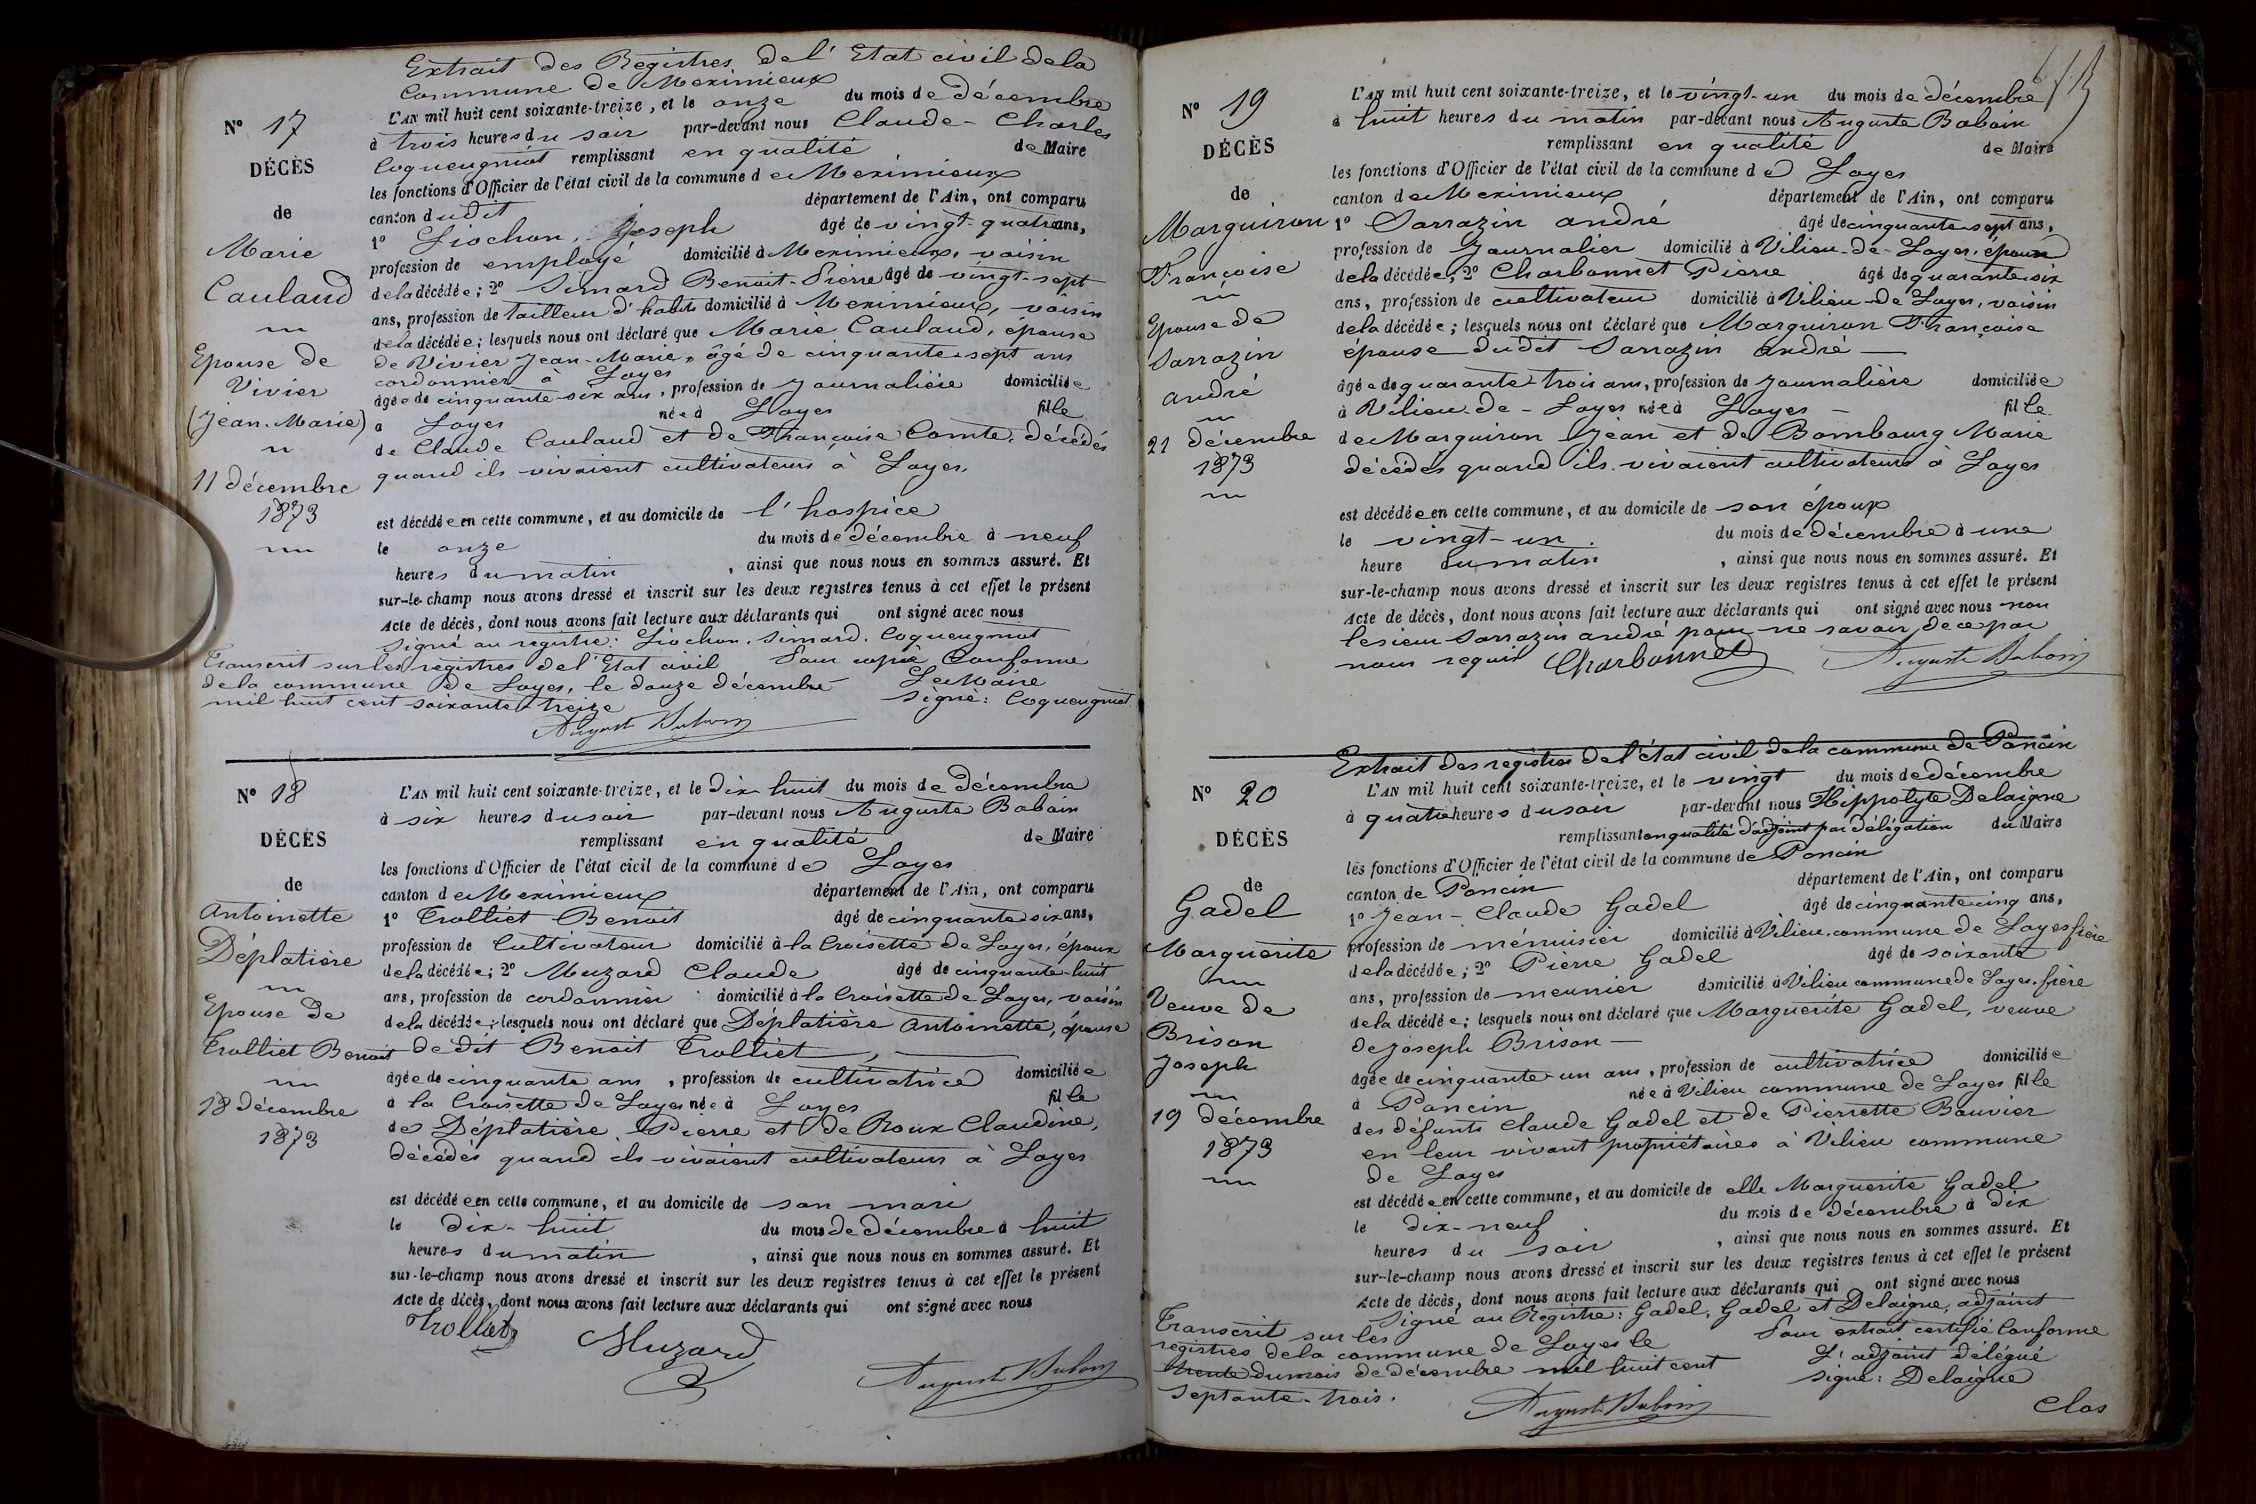 Extrait des Registres de l'Etat civil de la
Commune de Meximieux
N° 17
DÉCÈS
de
Marie
Caulaud
Epouse de
Vivier
(Jean-Marie)
11 décembre
1873
L'AN mil huit cent soixante-treize, et le onze du mois de décembre
à trois heures du soir par-devant nous Claude-Charles
Coqueugniot remplissant en qualité de Maire
les fonctions d'Officier de l'état civil de la commune de Meximieux
canton dudit département de l'Ain, ont comparu
1° Liochon, Joseph âgé de vingt-quatre ans,
profession de employé domicilié à Meximieux, voisin
de la décédée; 2° Simard Benoit-Pierre âgé de vingt-sept
ans, profession de tailleur d'habits domicilié à Meximieux, voisin
de la décédée; lesquels nous ont déclaré que Marie Caulaud, épouse
de Vivier Jean-Marie, âgé de cinquante-sept ans
cordonnier à Loyes
âgée de cinquante-six ans, profession de journalière domiciliée
à Loyes née à Loyes fille
de Claude Caulaud et de Françoise Comte, décédés
quand ils vivaient cultivateurs à Loyes,
est décédée en cette commune, et au domicile de l'hospice
le onze du mois de décembre à neuf
heures du matin, ainsi que nous nous en sommes assuré. Et
sur-le-champ nous avons dressé et inscrit sur les deux registres tenus à cet effet le présent
Acte de décès, dont nous avons fait lecture aux déclarants qui ont signé avec nous
Signé au registre: Liochon, Simard, Coqueugniot
Transcrit sur les registres de l'Etat civil Pour copie Conforme
de la commune de Loyes, le douze décembre Le Maire
mil huit cent soixante-treize signé: Coqueugniot
N° 18
DÉCÈS
de
Antoinette
Déplatière
Epouse de
Trolliet Benoit
18 décembre
1873
L'AN mil huit cent soixante-treize, et le dix-huit du mois de décembre
à six heures du soir par-devant nous Auguste Baboin
remplissant en qualité de Maire
les fonctions d'Officier de l'état civil de la commune de Loyes
canton de Meximieux département de l'Ain, ont comparu
1° Trolliet Benoit âgé de cinquante-six ans,
profession de Cultivateur domicilié à la Croisette de Loyes, époux
de la décédée; 2° Muzard Claude âgé de cinquante-huit
ans, profession de cordonnier domicilié à la Croisette de Loyes, voisin
de la décédée; lesquels nous ont déclaré que Déplatière Antoinette, épouse
de dit Benoit Trolliet,
âgée de cinquante ans, profession de cultivatrice domiciliée
à la Croisette de Loyes née à Loyes fille
de Déplatière Pierre et de Roux Claudine,
décédés quand ils vivaient cultivateurs à Loyes
est décédée en cette commune, et au domicile de son mari
le dix-huit du mois de décembre à huit
heures du matin, ainsi que nous nous en sommes assuré. Et
sur-le-champ nous avons dressé et inscrit sur les deux registres tenus à cet effet le présent
Acte de décès, dont nous avons fait lecture aux déclarants qui ont signé avec nous
Trolliet Muzard
Auguste Baboin
N° 19
DÉCÈS
de
Marguiron
Françoise
Epouse de
Sarrazin
andré
21 décembre
1873
L'AN mil huit cent soixante-treize, et le vingt-un du mois de décembre
à huit heures du matin par-devant nous Auguste Baboin
remplissant en qualité de Maire
les fonctions d'Officier de l'état civil de la commune de Loyes
canton de Meximieux département de l'Ain, ont comparu
1° Sarrazin andré âgé de cinquante-sept ans,
profession de Journalier domicilié à Vilieu-de-Loyes, époux
de la décédée; 2° Charbonnet Pierre âgé de quarante-six
ans, profession de cultivateur domicilié à Vilieu-de-Loyes, voisin
de la décédée; lesquels nous ont déclaré que Marguiron Françoise
épouse dudit Sarrazin andré
âgée de quarante-trois ans, profession de journalière domiciliée
à Vilieu-de-Loyes née à Loyes fille
de Marguiron Jean et de Bombourg Marie
décédés quand ils vivaient cultivateurs à Loyes
est décédée en cette commune, et au domicile de son époux
le vingt-un. du mois de décembre à une
heure du matin, ainsi que nous nous en sommes assuré. Et
sur-le-champ nous avons dressé et inscrit sur les deux registres tenus à cet effet le présent
Acte de décès, dont nous avons fait lecture aux déclarants qui ont signé avec nous non
le sieur Sarrazin andré pour ne savoir de ce par
nous requis Charbonnet Auguste Baboin
Extrait des registres de l'état civil de la commune de Poncin
N° 20
DÉCÈS
de
Gadel
Marguerite
Veuve de
Brison
Joseph
19 décembre
1873
L'AN mil huit cent soixante-treize, et le vingt du mois de décembre
à quatre heures du soir par-devant nous Hippolyte Delaigne
remplissant en qualité d'adjoint par délégation du Maire
les fonctions d'Officier de l'état civil de la commune de Poncin
canton de Poncin département de l'Ain, ont comparu
1° Jean-Claude Gadel âgé de cinquante-cinq ans,
profession de ménuisier domicilié à Vilieu, commune de Loyes frère
de la décédée; 2° Pierre Gadel âgé de soixante
ans, profession de meunier domicilié à Vilieu commune de Loyes, frère
de la décédée; lesquels nous ont déclaré que Marguerite Gadel, veuve
de Joseph Brison
âgée de cinquante-un ans, profession de cultivatrice domiciliée
à Poncin née à Vilieu commune de Loyes fille
des défunts Claude Gadel et de Pierrette Bouvier
en leur vivant propriétaires à Vilieu commune
de Loyes
est décédée en cette commune, et au domicile de elle Marguerite Gadel
le dix-neuf du mois de décembre à dix
heures du soir, ainsi que nous nous en sommes assuré. Et
sur-le-champ nous avons dressé et inscrit sur les deux registres tenus à cet effet le présent
Acte de décès, dont nous avons fait lecture aux déclarants qui ont signé avec nous
Signé au Registre: Gadel, Gadel et Delaigne, adjoint
Transcrit sur les Pour extrait certifié Conforme
registres de la commune de Loyes le L'adjoint délégué
trente du mois de décembre mil huit cent signé: Delaigne
septante-trois.
Auguste Baboin
Clos